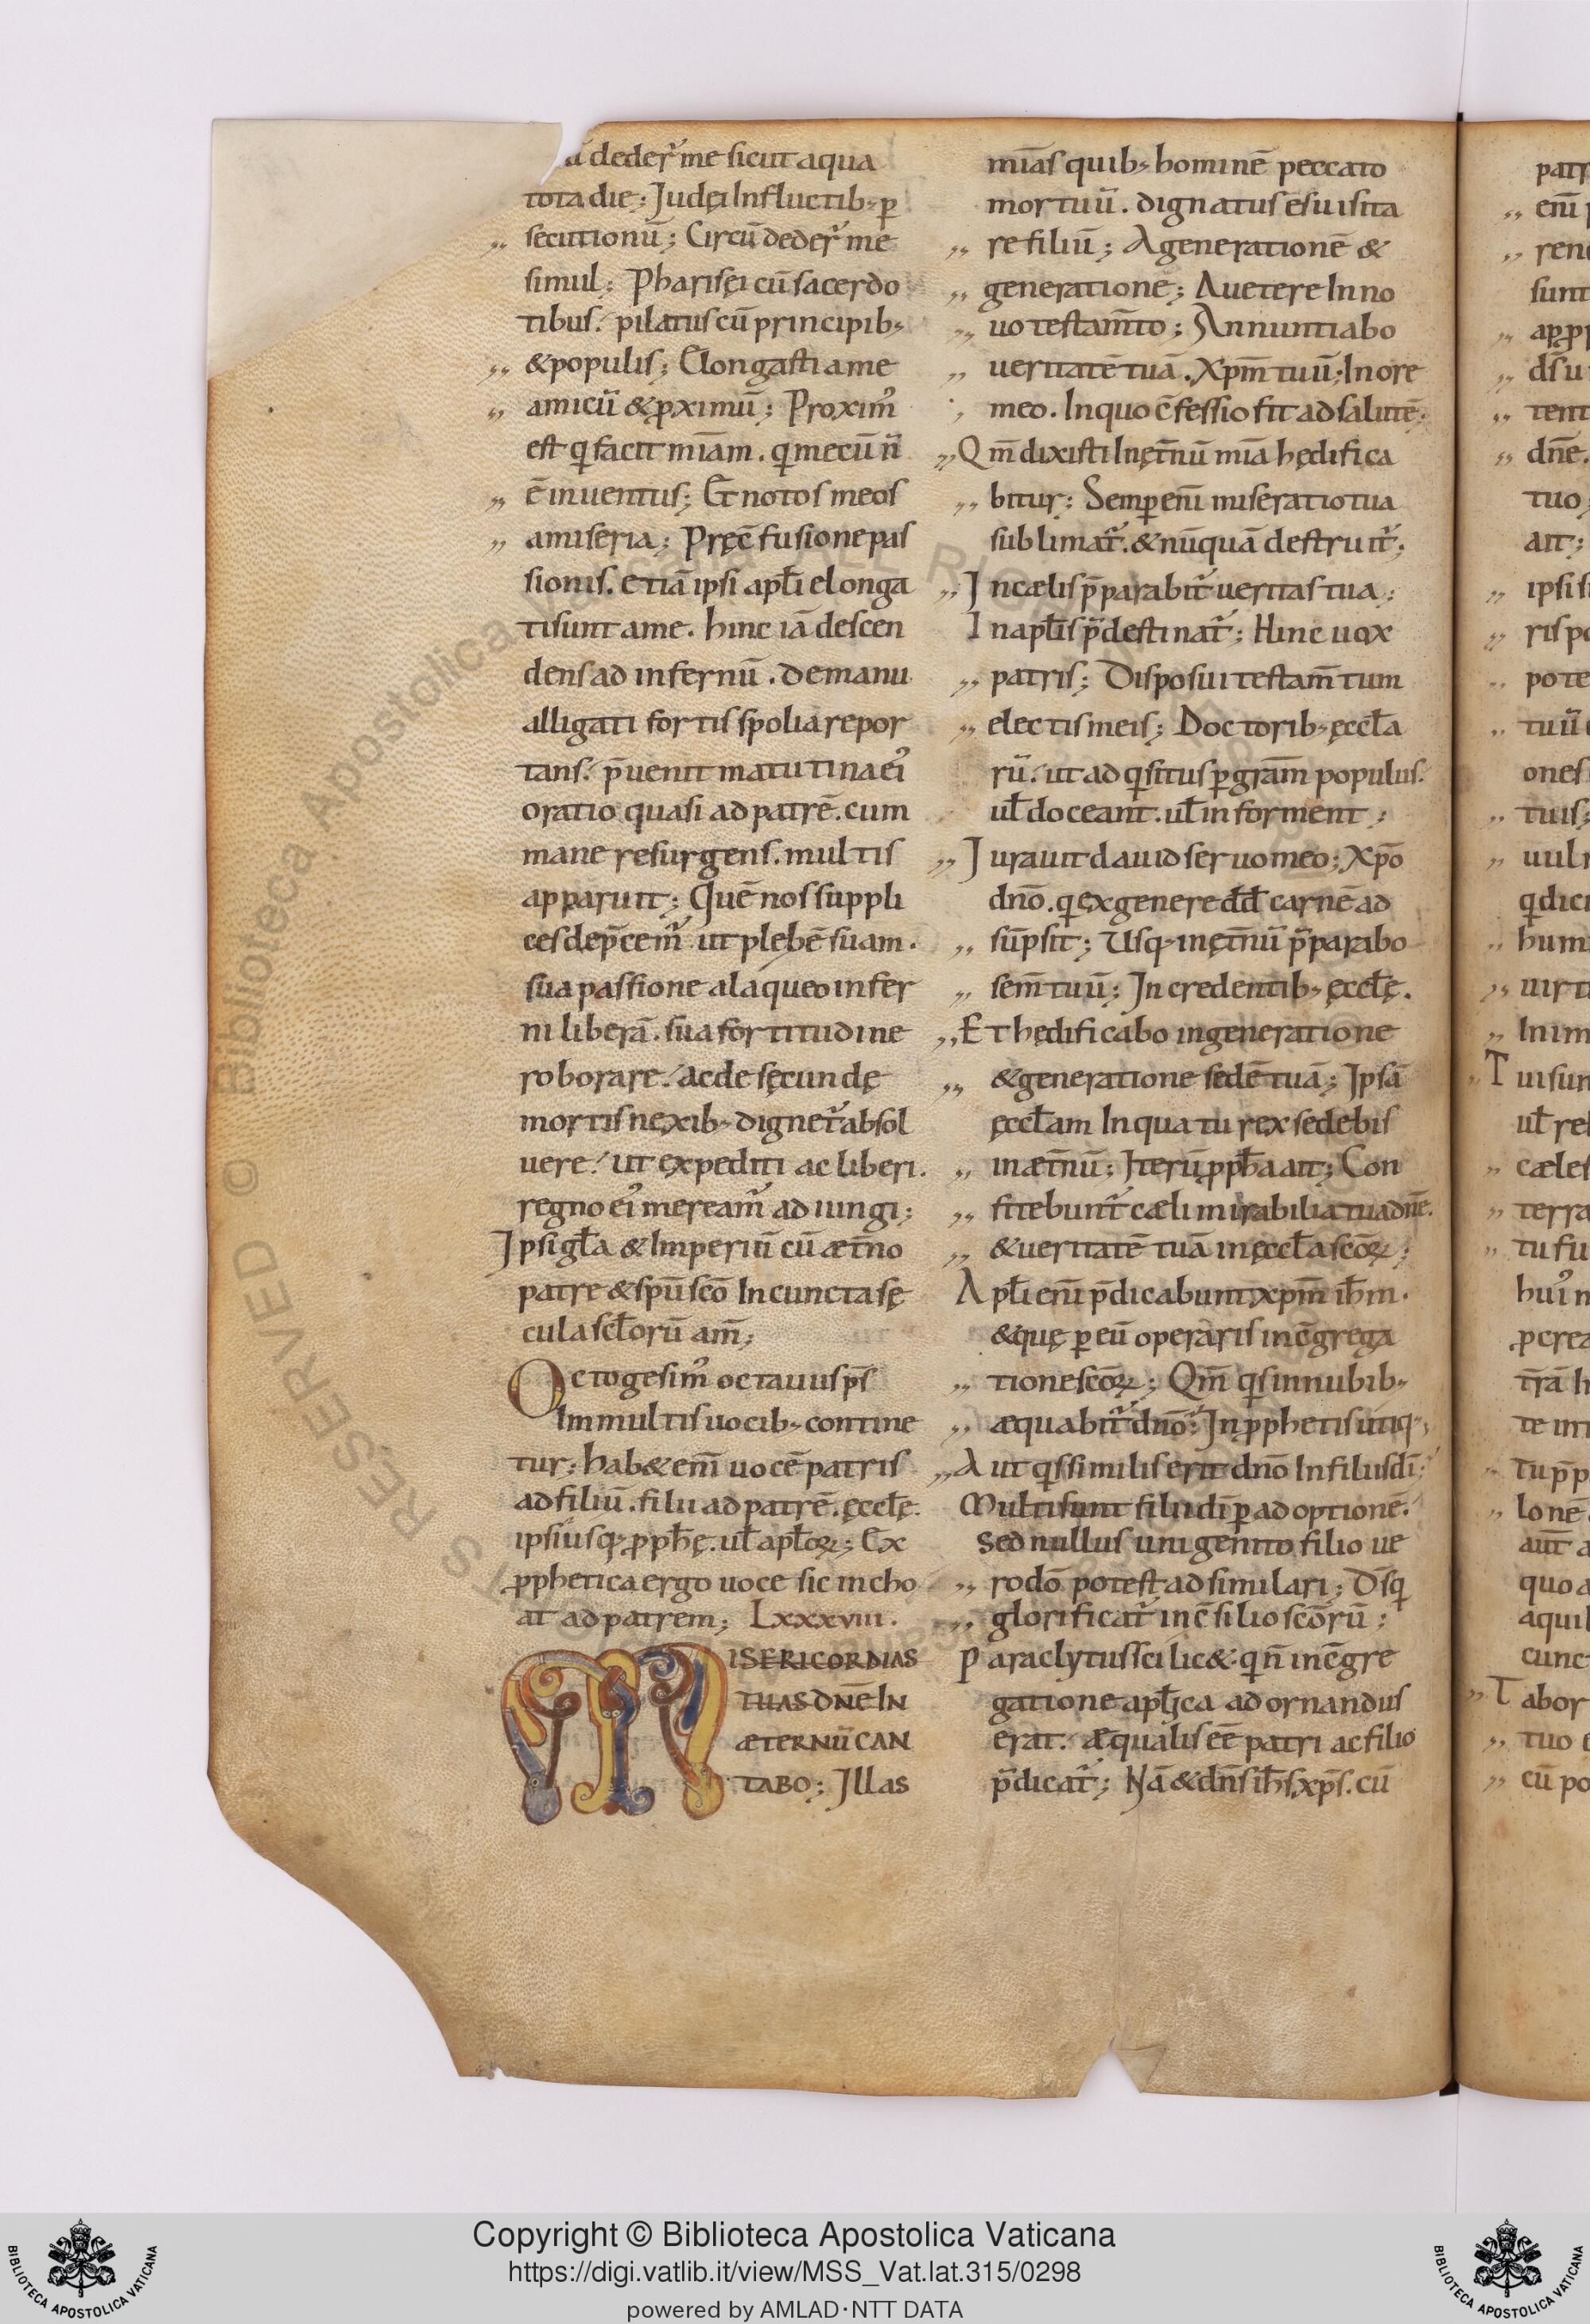 dederᷣ me sicut aqua
tota die; Judęi Influctib; ꝑ
secutionū; Circūdederᷣ me
simul; Pharisęi cū sacerdo
tibus. pilatus cū principib;
& populis; Elongasti a me
amicū & ꝓximū; Proximꝰ
est q facit miām. q mecū n̄
ē inuentus; Et notos meos
a miseria; Pręc̄fusione pas
sionis. etiā ipsi apłi elonga
ti sunt a me. hinc iā descen
dens ad infernū. de manu
alligati fortis spolia repor
tans. p̄uenit matutina eiꝰ
oratio quasi ad patrē. cum
mane resurgens. multis
apparuit; Quē nos suppli
ces dep̄cemᷣ ut plebē suam.
sua passione a laqueo infer
ni liberā. sua fortitudine
roborare. ac de sęcundę
mortis nexib; dignetᷣ absol
uere. ut expediti ac liberi.
regno eiꝰ mereamᷣ adiungi;
Ipsi gła & Imperiū cū æt̄no
patre & sp̄u sc̄o In cuncta sę
cula scłorū am̄;
Octogesimꝰ octauus ps̄
Im multis uocib; contine
tur; hab& enī uocē patris
ad filiū. filii ad patrē. ęccłę.
ipsiusq; ꝓph̄ę. uł apłoꝝ; Ex
ꝓphetica ergo uoce sic incho
at ad patrem; Lxxxviii.
MISERICORDIAS
TUAS DN̄E IN
ÆTERNŪ CAN
TABO; Illas
miās quib; hominē peccato
mortuū. dignatus es uisita
re filiū; A generationē &
generatione; A uetere In no
uo testam̄to; Annuntiabo
ueritatē tuā. Xp̄m tuū; In ore
meo. In quo c̄fessio fit ad salutē;
Qm̄ dixisti In ęt̄nū miā hędifica
bitur; Semꝑ enī miseratio tua
sublimatᷣ. & nūquā destruitᷣ;
In cælis p̄parabitᷣ ueritas tua;
In apłis p̄destinatᷣ; Hinc uox
patris; Disposui testam̄tum
electis meis; Doctorib; ęccła
rū. ut adqsitus ꝑ grām populus.
uł doceant. uł informent;
Iurauit dauid seruo meo; Xp̄o
dn̄o. q ex genere dd̄ carnē ad
sūpsit; Usq; in ęt̄nū p̄parabo
sem̄ tuū; In credentib; ęccłę.
Et hędificabo in generatione
& generatione sedē tuā; Ipsā
ęccłam In qua tu rex sedebis
in æt̄nū; Iterū ꝓph̄a ait; Con
fitebuntᷣ cæli mirabilia tua dn̄e.
& ueritatē tuā in ęccła sc̄oꝝ;
Apłi enī p̄dicabunt xp̄m ih̄m.
& quę ꝑ eū operaris in c̄grega
tione sc̄oꝝ; Qm̄ qs in nubib;
æquabitᷣ dn̄o; In ꝓphetis utiq;
Aut qs similis erit dn̄o In filiis dī;
Multi sunt filii dī ꝑ adoptionē.
Sed nullus unigenito filio ue
ro dō potest adsimilari; D̄s q
glorificatᷣ in c̄silio sc̄orū;
Paraclytus scilic&. q n̄ in c̄gre
gatione apłica adornandus
erat. æqualis eē patri ac filio
p̄dicatᷣ; Nā & dn̄s ih̄s xp̄s. cū
Copyright © Biblioteca Apostolica Vaticana
https://digi.vatlib.it/view/MSS_Vat.lat.315/0298
powered by AMLAD·NTT DATA